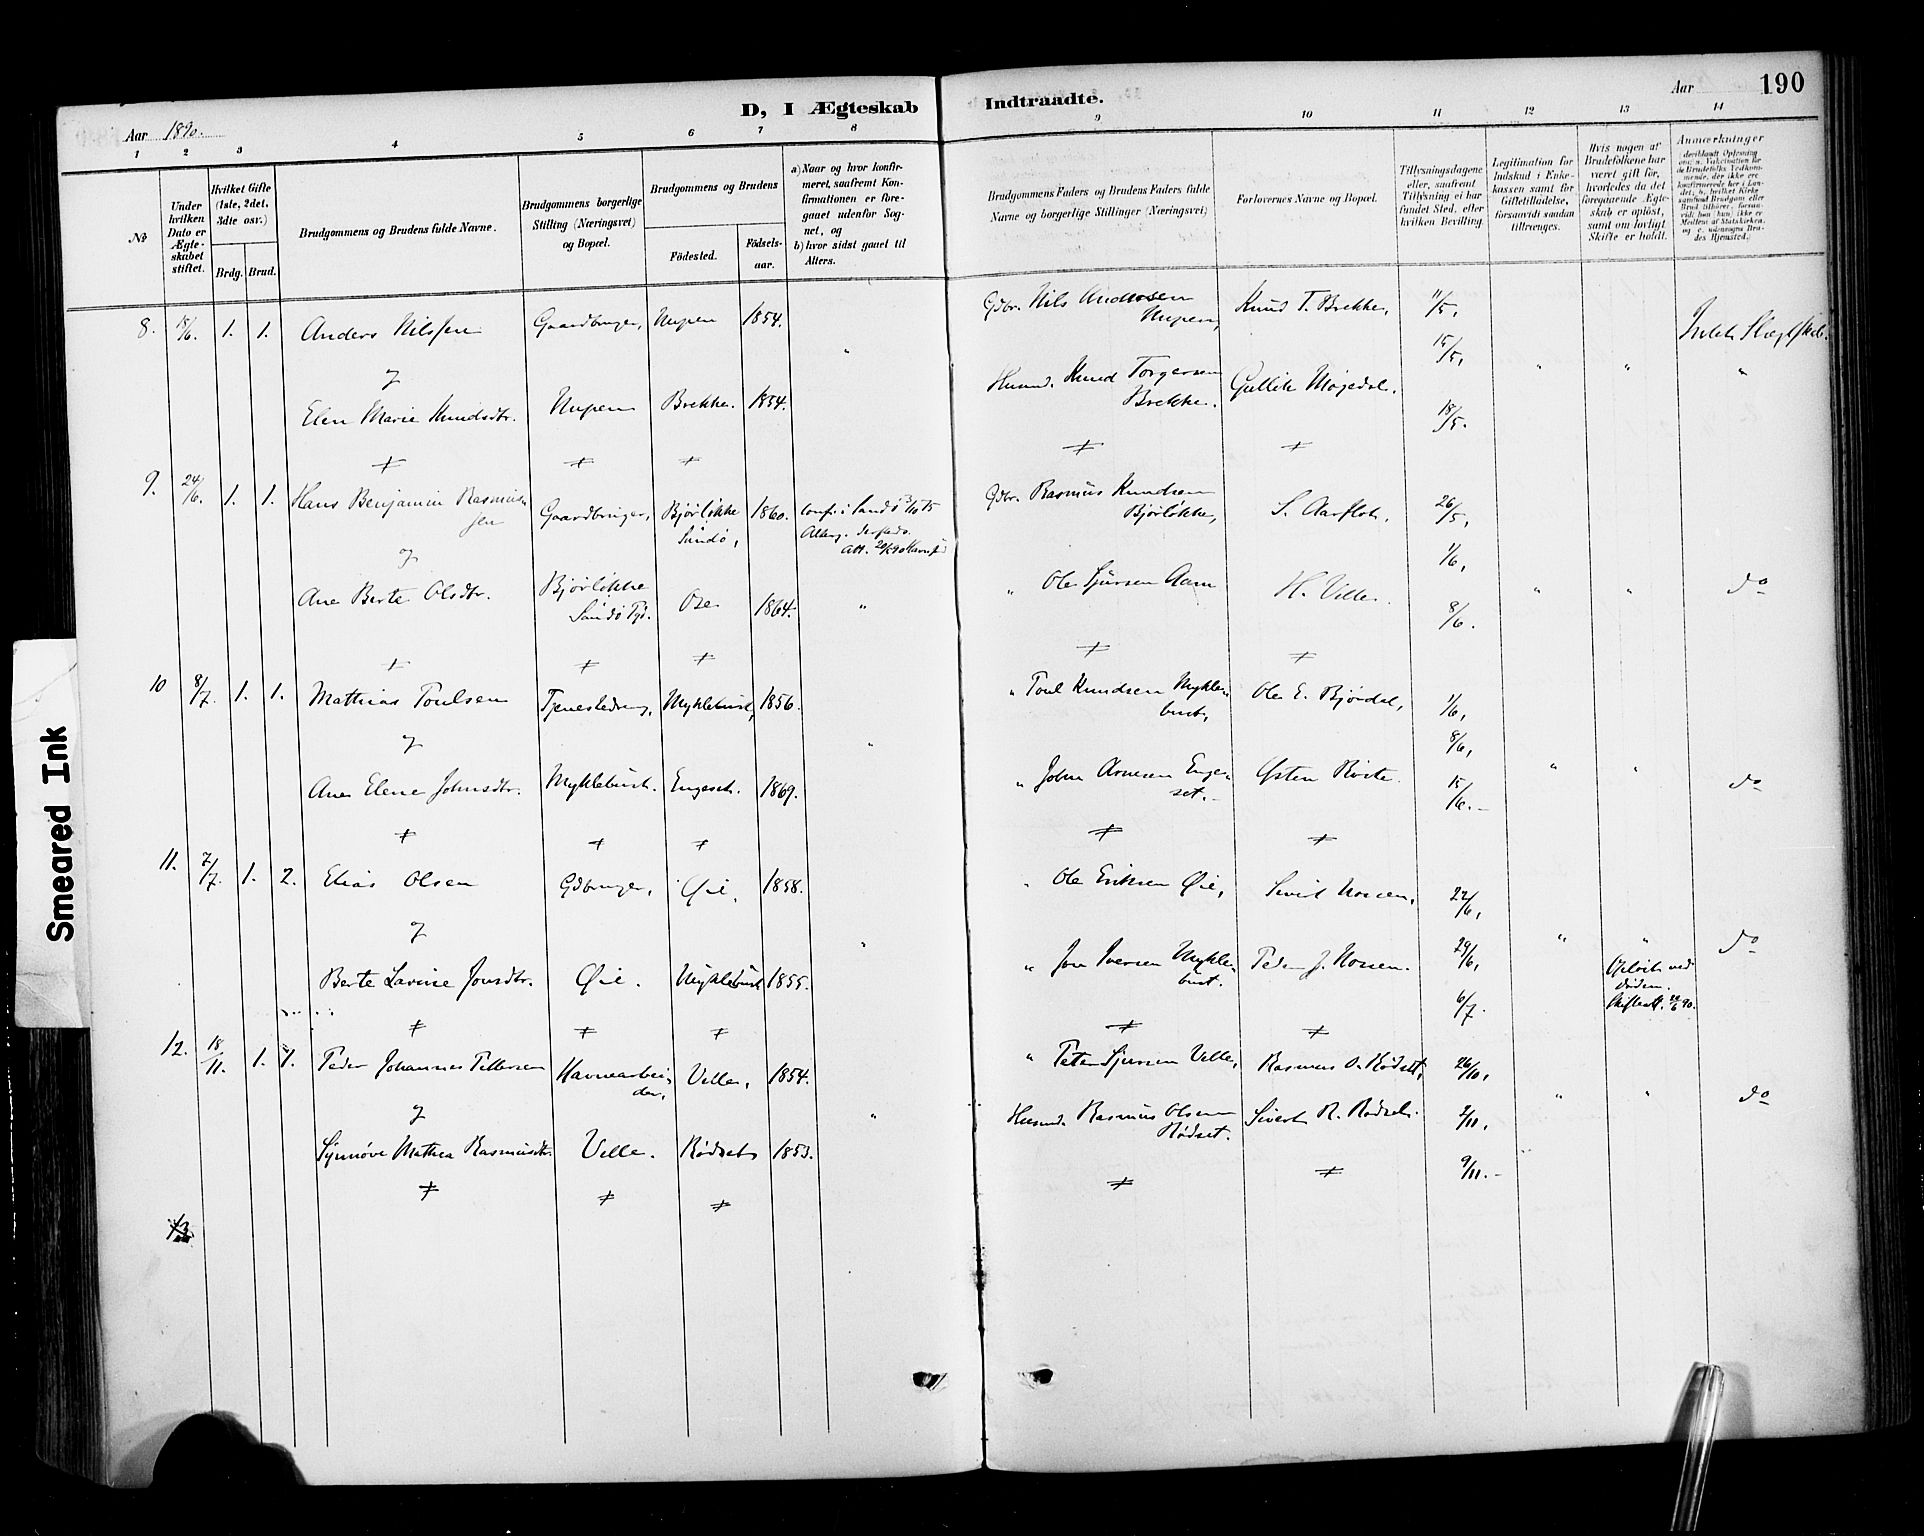 190
D, I Ægteskab Indtraadte.
Aar 1890.
Aar
1 2 3 4 5 6 7 8 9 10 11 12 13 14
No
Under hvilken Dato er Ægteskabet stiftet.
Hvilket Gifte (1ste, 2det, 3die osv.)
Brdg. Brud.
Brudgommens og Brudens fulde Navne.
Brudgommens borgerlige Stilling (Næringsvei) og Bopæl.
Brudgommens og Brudens
Födested.
Födsels-aar.
a) Naar og hvor konfirmeret, saafremt Konfirmationen er foregaaet udenfor Sognet, og
b) hvor sidst gaaet til Alters.
Brudgommens Faders og Brudens Faders fulde Navne og borgerlige Stillinger (Næringsvei)
Forlovernes Navne og Bopæl.
Tillysningsdagene eller, saafremt Tillysning ei har fundet Sted, efter hvilken Bevilling.
Legitimation for Indskud i Enkekassen samt for Giftetilladelse, forsaavidt saadan tiltrænges.
Hvis nogen af Brudefolkene har været gift før, hvorledes da det foregaaende Ægteskab er oplöst, samt om lovligt Skifte er holdt.
Anmærkninger
8. 15/6. 1. 1. Anders Nilssen Gaardbruger, Nupen 1854. " Gdbr. Nils Andersen Nupen, Knud T. Brekke, 11/5,
15/5,
Elen Marie Knudsdtr. Nupen Brekke. 1854. Husmd. Knud Torgersen Brekke. Gullik Mogedal. 18/5. " " "
9. 24/6. 1. 1. Hans Benjamin Rasmussen Gaardbruger, Bjørløkke Sandø, 1860. Conf. i Sandø 3/10 75 Gdbr. Rasmus Knudsen Bjørløkke, S. Aarflot, 26/5,
1/6,
Ane Berte Olsdtr. Bjørløkke Sandø Pgd. Ose 1864. " " Ole Sjursen Aam H. Velle. 8/6. " " do
10 8/7. 1. 1. Mathias Poulsen Tjenestedreng, Myklebust, 1856. " " Poul Knudsen Myklebust, Ole E. Bjørdal, 1/6,
8/6,
Ane Elene Johnsdtr. Myklebust. Engeset. 1869. " John Arnesen Engeset. Østen 15/6. " " do
11. 7/7. 1. 2. Elias Olsen Gdbruger, Øie, 1858. " " Ole Eriksen Øie, Sivert Mossen, 22/6,
29/6,
Berte Lavine Jonsdtr. Øie. Myklebust 1855. " Jon Iversen Myklebust. Peder J. Mossen. 6/7. " " Opløst ved Døden. Skifteatt. do
12. 18/11. 1. 1. Peder Johannes Pettersen Havnearbeider, Velle, 1854. " " Peter Sjursen Velle, Rasmus O. Rødset, 26/10,
2/11,
Synnøve Mathea Rasmusdtr. Velle. Rødset 1853. Husmd. Rasmus Olsen Rødset. Sivert R. Rødset. 9/11. " " do
13
Smeared Ink